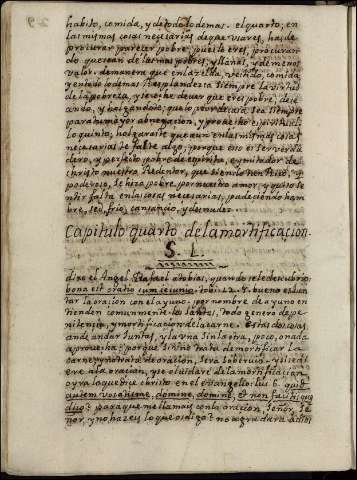 habito, comida, y de todo lo demas. el quarto; en
las mismas cosas necesarias de que usares, has de
procurar parecer pobre, pues lo eres, procuran
do que sean de las mas pobres, y llanas, y de menos
valor. de manera que en la celda, vestido, comida
y en todo lo demas resplandezca siempre la virtud
de la pobreza, y se eche de ver que eres pobre, dese
ando, y holgandote; que lo peor de casa sea siempre
para ti a mayor abnegacion, y provecho espiritual.
lo quinto, holgaraste que aun en las mismas cosas
necesarias te falte algo; porque eso es ser verda
dero, y perfecto pobre de espiritu, e ymitador de
christo nuestro Redentor, que siendo tan Rico, y
poderoso, se hizo pobre por nuestro amor, y quiso se
ntir falta en las cosas necesarias, padeciendo ham
bre, sed, frio, cansancio, y desnudez.
Capitulo quarto de la mortificacion.
S. 1.
dixo el Angel Rafael a tobias, quando se le descubrio
bona est oratio cum ieiunio. tobi. 12. bueno es iun
tar la oracion con el ayuno. por nombre de ayuno en
tienden comunmente los santos, todo genero de pe
nitencia, y mortificacion de la carne. estas dos cosas
an de andar juntas, y la una sin la otra, poco, o nada
aprovecha. porque si uno trata de mortificar la
carne, y no trata de oracion, sera soberuia. y si se di
ere a la oracion, y se oluidare de la mortificacion
oyra lo que dice christo en el euangelio: luc. 6. quid
autem vocatis me, domine, domine, et non facitis que
dico? para que me llamais con la oracion, Señor, Se
ñor, y no haceis lo que os digo? no agradara a dios